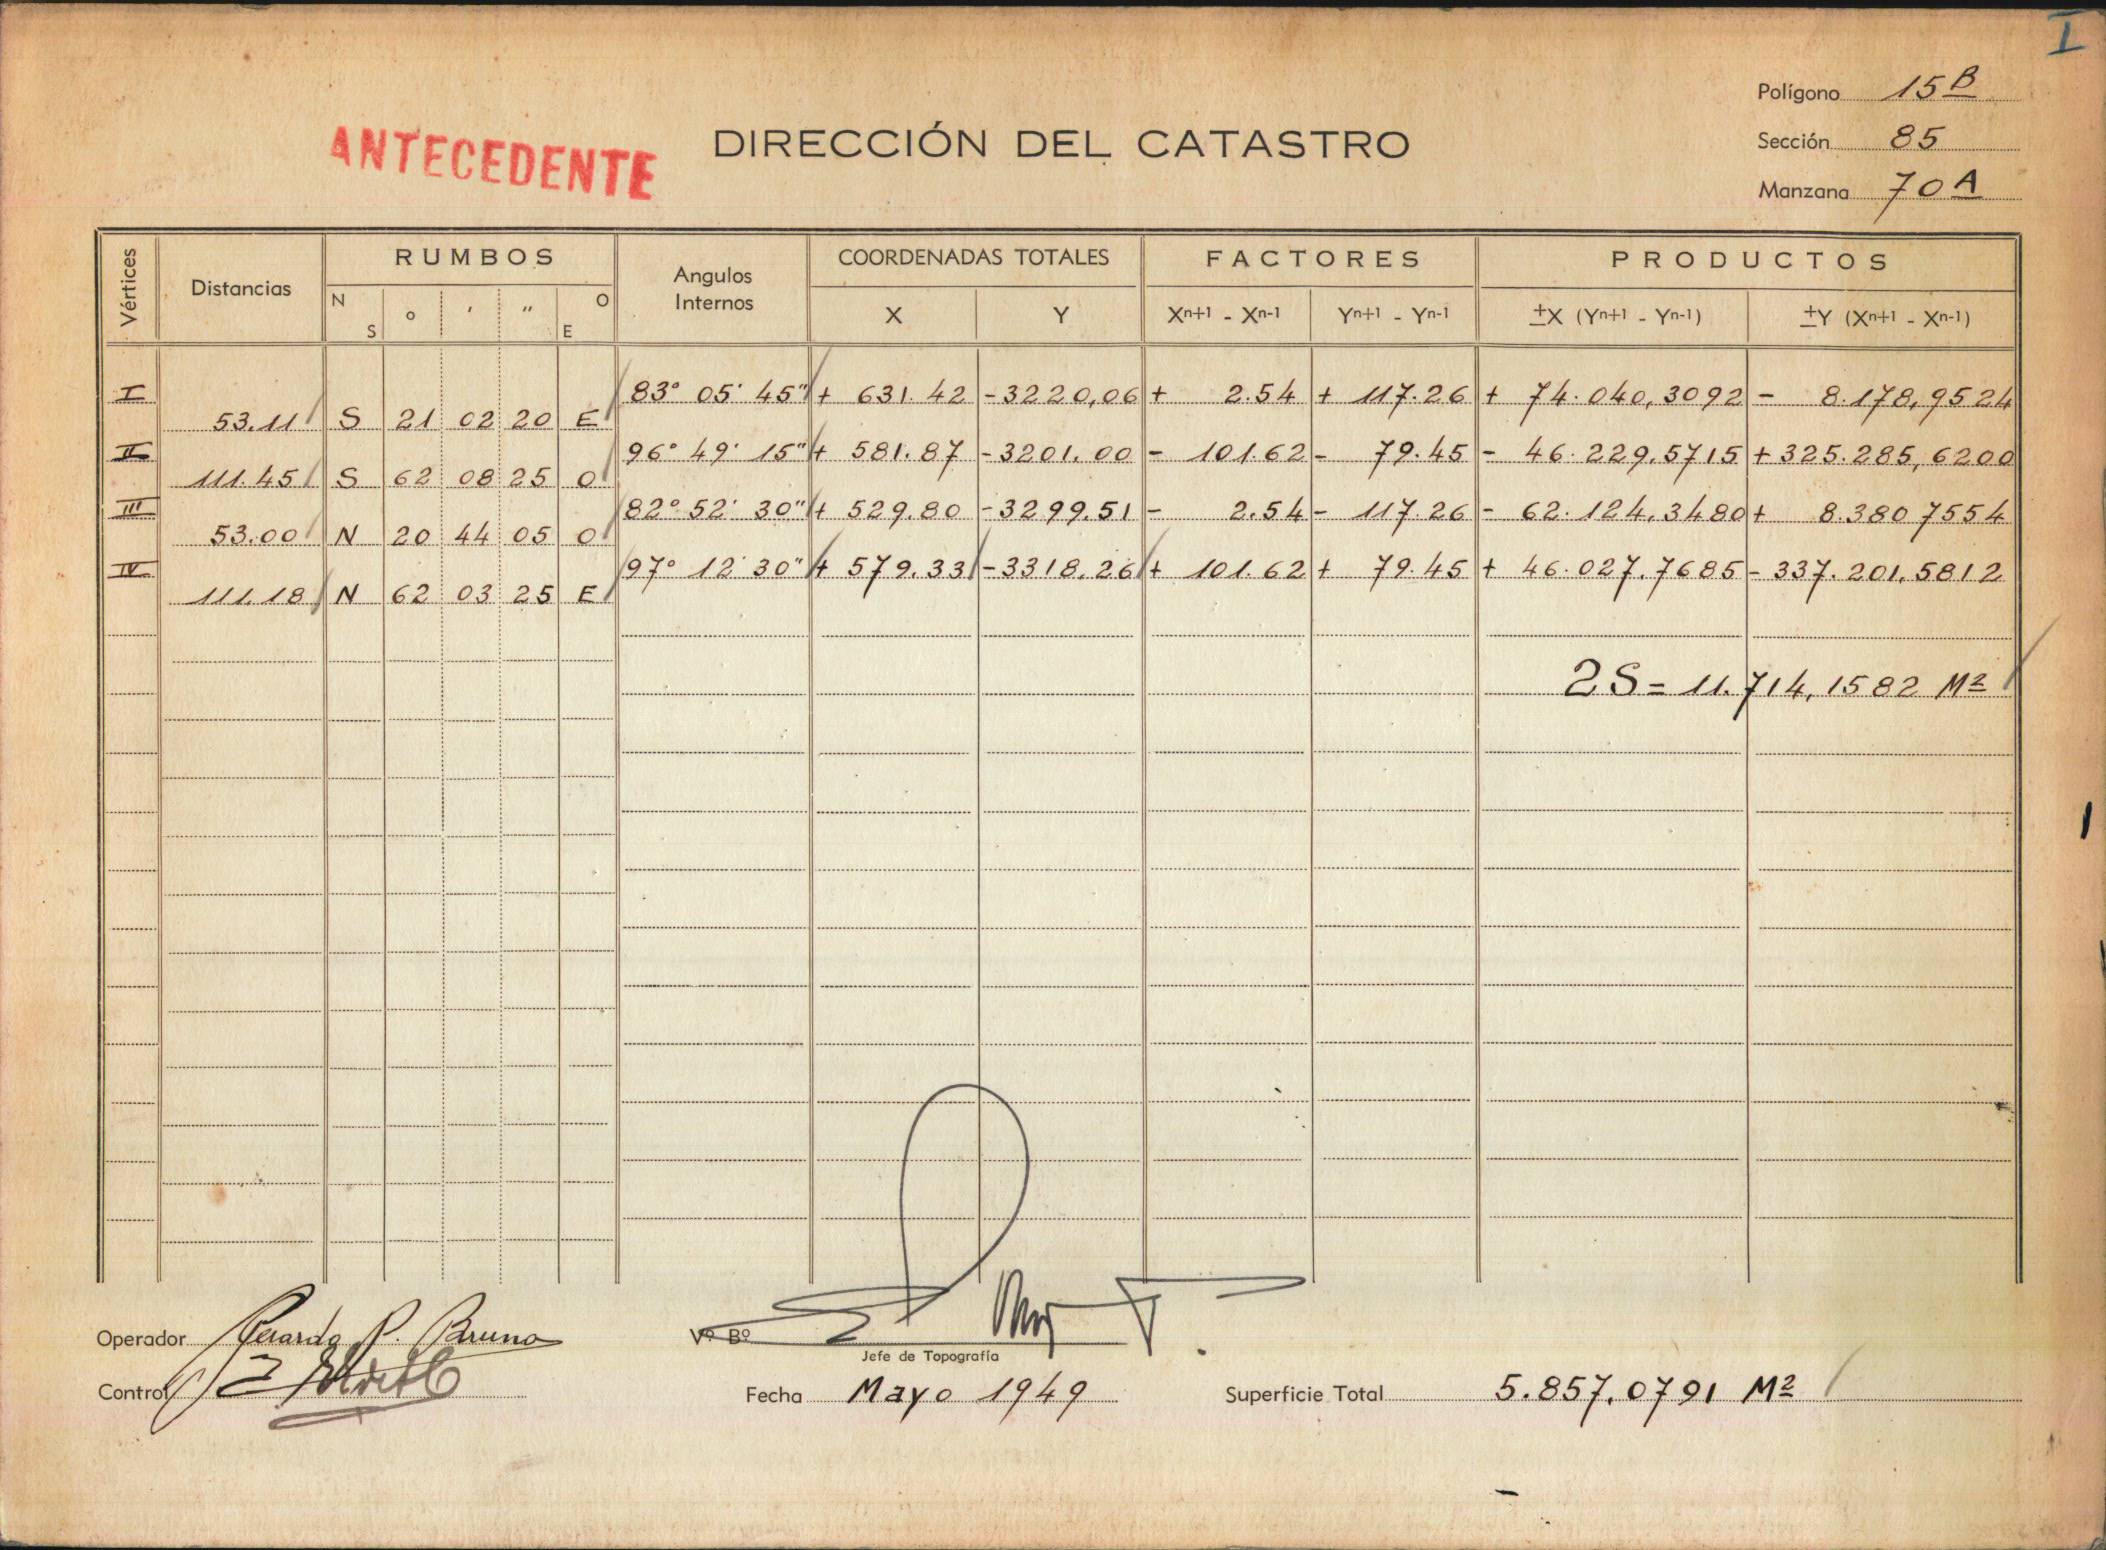 I
Polígono 15 B
ANTECEDENTE DIRECCIÓN DEL CATASTRO
Sección 85
Manzana 70 A
Vértices Distancias RUMBOS Angulos Internos COORDENADAS TOTALES FACTORES PRODUCTOS
N S ° ' " O E X Y Xn+1 - Xn-1 Yn+1 - Yn-1 ±X (Yn+1 - Yn-1) ±Y (Xn+1 - Xn-1)
I 83° 05' 45" + 631.42 -3220,06 + 2.54 + 117.26 + 74.040,3092 - 8.178,9524
53.11 S 21 02 20 E
II 96° 49' 15" + 581.87 -3201.00 - 101.62 - 79.45 - 46.229,5715 +325.285,6200
111.45 S 62 08 25 O
III 82° 52' 30" + 529.80 -3299.51 - 2.54 - 117.26 - 62.124,3480 + 8.380 7554
53.00 N 20 44 05 O
IV 97° 12' 30" + 579.33 -3318.26 + 101.62 + 79.45 + 46.027,7685 - 337.201,5812
111.18 N 62 03 25 E
2S = 11.714,1582 M2
Operador Gerardo P. Bruno Vº Bº
Jefe de Topografía
Control Fecha Mayo 1949 Superficie Total 5.857,0791 M2